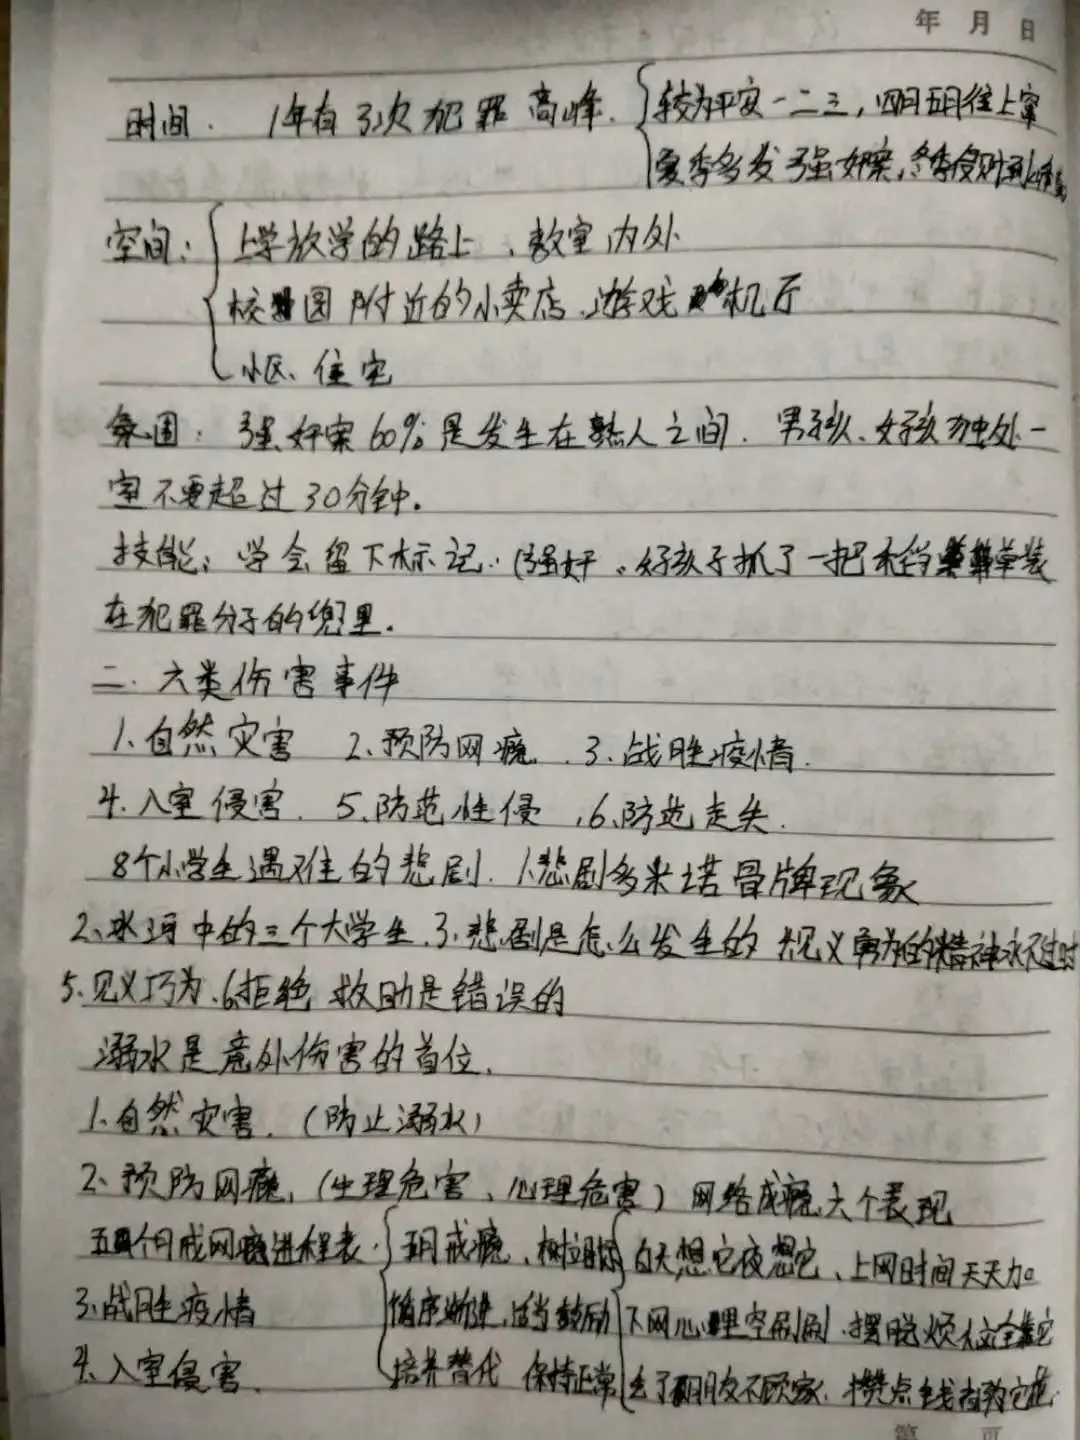 年 月 日
时间. 1年有3次犯罪高峰. 较为平安一二三，四月五月往上窜
夏季多发强奸案，冬季侵财到
空间： 上学放学的路上、教室内外
校园附近的小卖店、游戏机厅
小区、住宅
氛围：强奸案60%是发生在熟人之间. 男孩、女孩独处一
室不要超过30分钟.
技能：学会留下标记.（强奸。女孩子抓了一把 装
在犯罪分子的兜里.
二. 六类伤害事件
1、自然灾害 2、预防网瘾. 3、战胜疫情.
4、入室侵害. 5、防范性侵 6、防范走失.
8个小学生遇难的悲剧. 1、悲剧多米塔骨牌现象
2、冰河中的三个大学生. 3、悲剧是怎么发生的 见义勇为的精神永不过时
5、见义巧为. 6、拒绝救助是错误的
溺水是意外伤害的首位.
1、自然灾害.（防止溺水）
2、预防网瘾，（生理危害、心理危害）网络成瘾六个表现
五个月戒网瘾进程表. 五月戒瘾、树立 白天想它夜想它、上网时间天天加
3、战胜疫情 循序渐进，适当鼓励 下网心里空刷刷. 摆脱烦人全靠它
4、入室侵害. 培养替代 保持正常 丢了朋友不顾家. 攒点钱都为它花
第 页